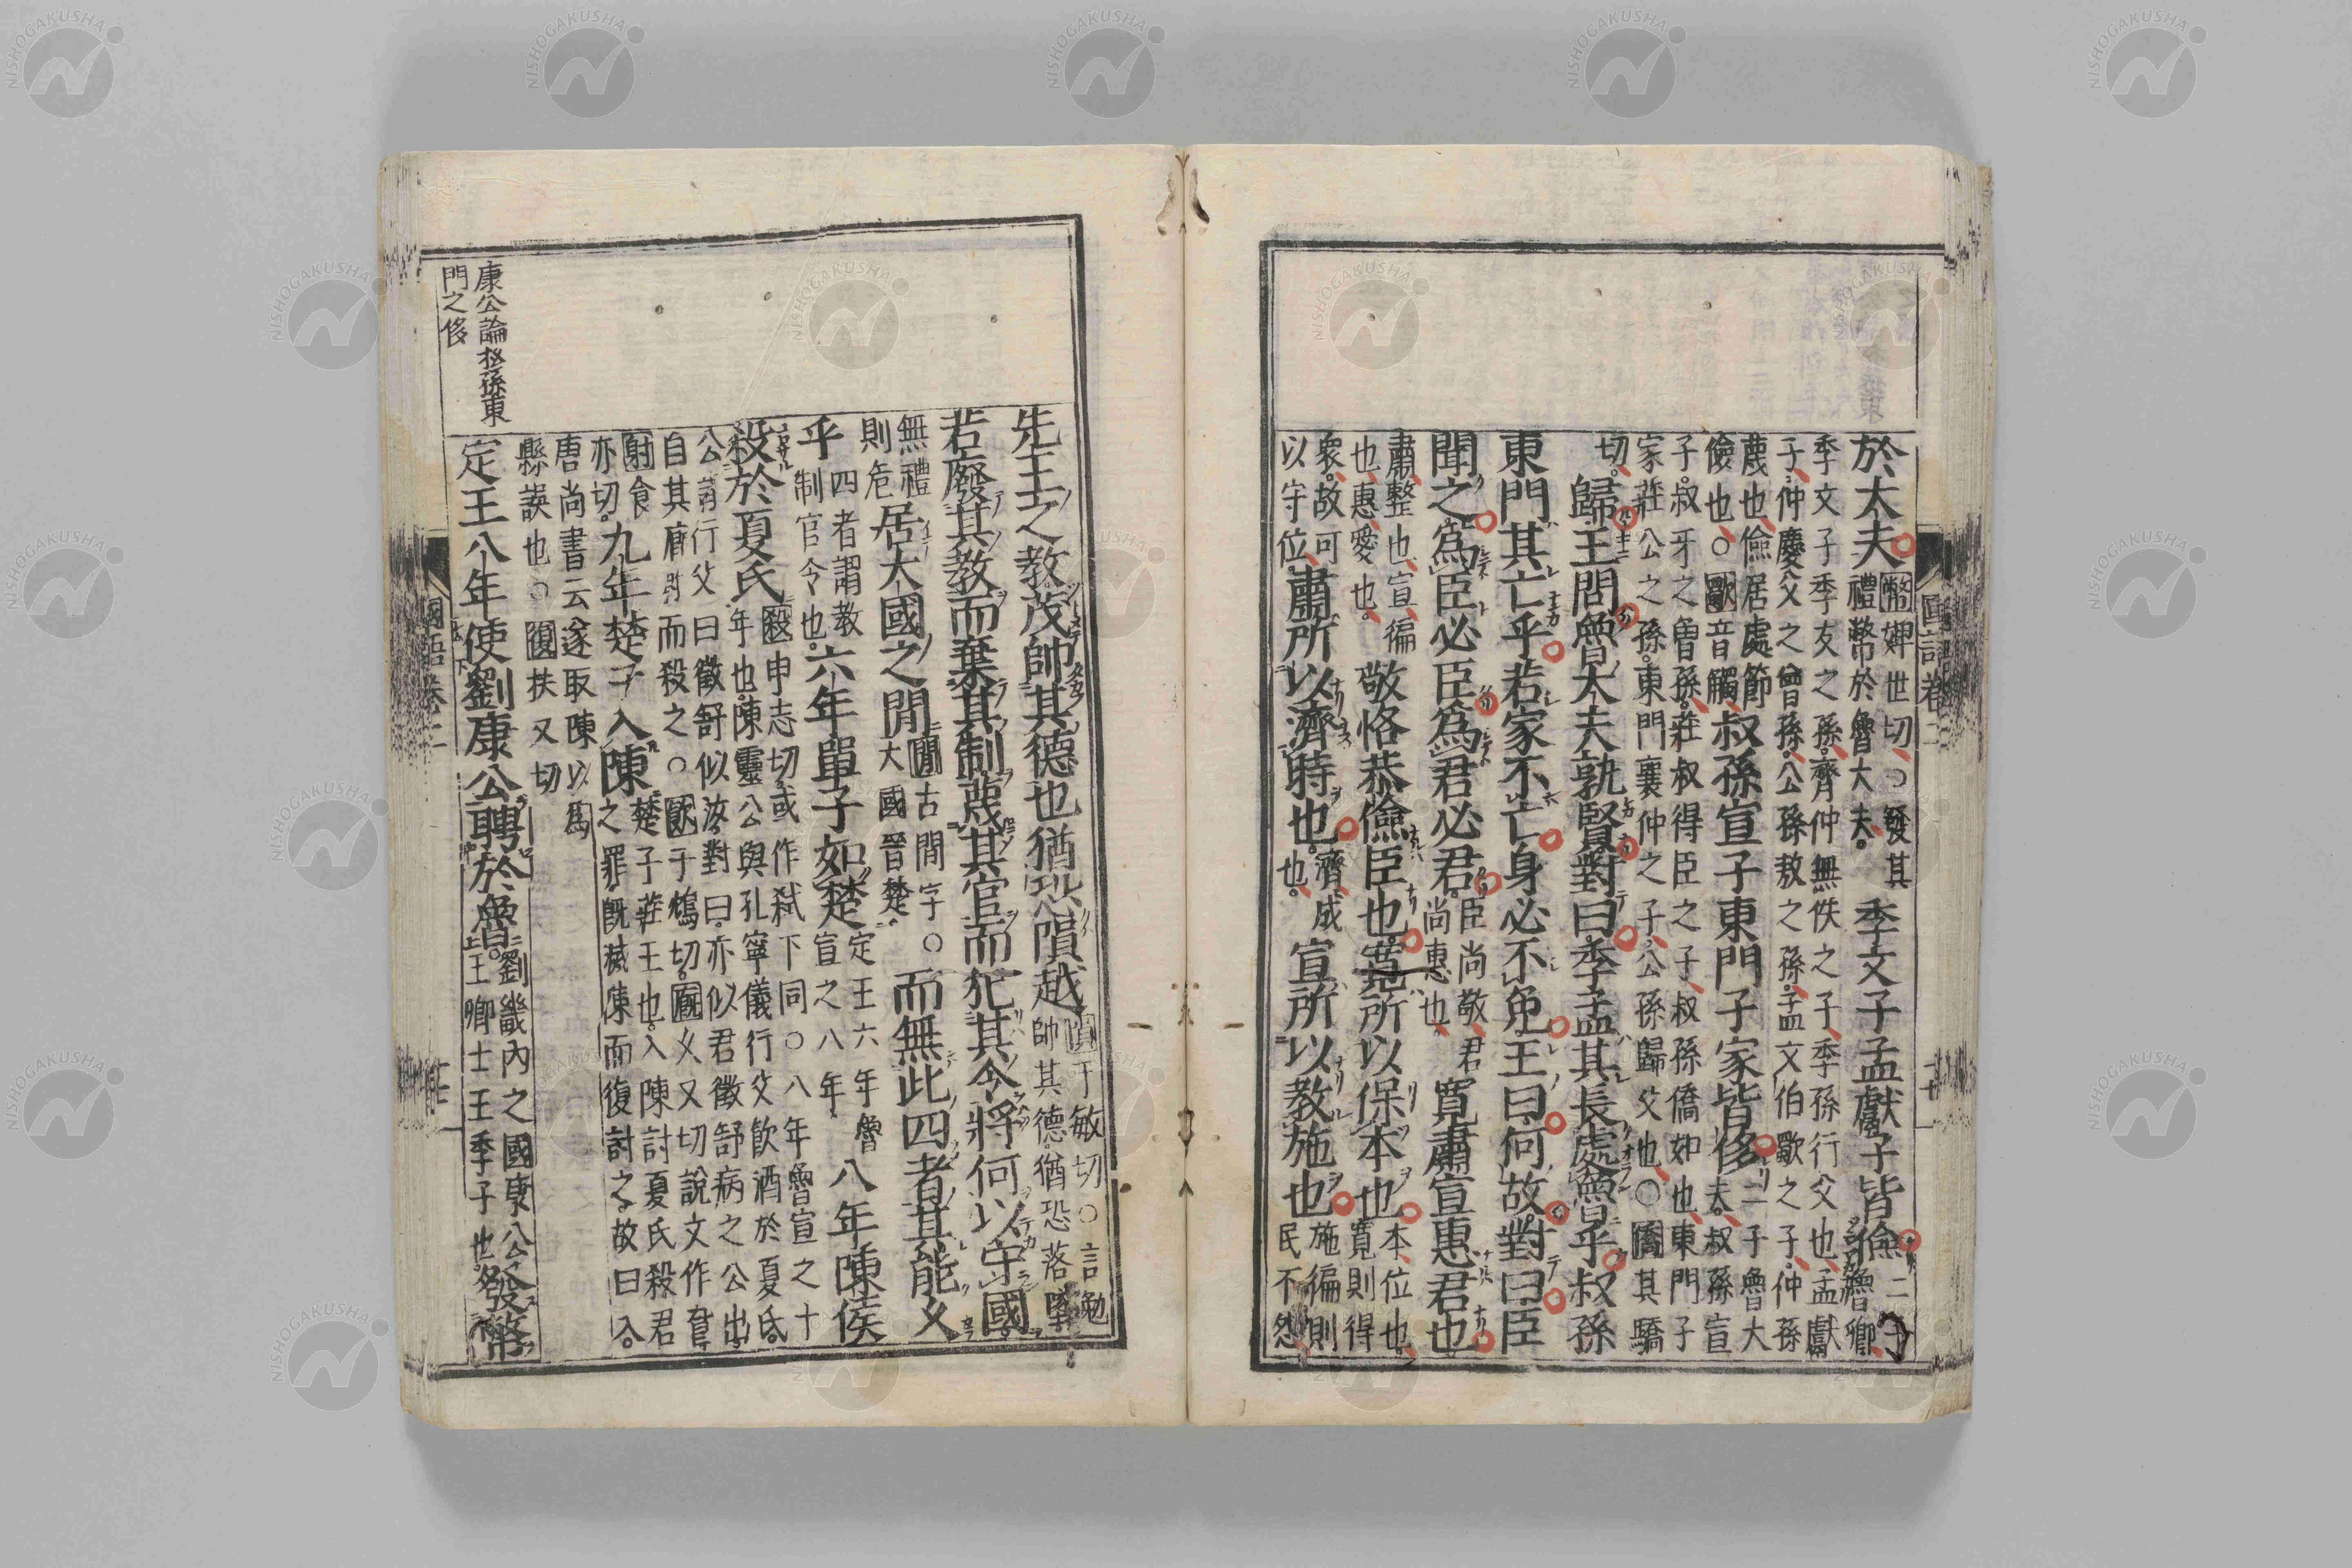 於大夫幣婢世切○發其禮幣於魯大夫季文子孟獻子皆儉二子魯卿
季文子季友之孫齊仲無佚之子季孫行父也孟獻
子仲慶父之曾孫公孫敖之孫孟文伯歜之子仲孫
蔑也儉居處節儉也○歜音觸叔孫宣子東門子家皆侈二子魯大夫叔孫宣
子叔牙之曾孫莊叔得臣之子叔孫僑如也東門子
家莊公之孫東門襄仲之子公孫歸父也○僑其驕
切歸王問魯大夫孰賢對曰季孟其長處魯乎叔孫
東門其亡乎若家不亡身必不免王曰何故對曰臣
聞之爲臣必臣爲君必君臣尚敬君尚惠也寬肅宣惠君也
肅整也宣徧也惠愛也敬恪恭儉臣也寬所以保本也本位也寬則得
衆故可以守位肅所以濟時也濟成也宣所以教施也施徧則民不怨
國語卷二
十一
先王之教茂帥其德也猶恐隕越隕于敏切○言勉帥其德猶恐落墜
若廢其教而棄其制蔑其官而犯其令將何以守國
無禮則危居大國之閒閒古閒字○大國晉楚而無此四者其能久
乎四者謂教制官令也六年單子如楚定王六年魯宣之八年八年陳侯
殺於夏氏殺申志切或作弒下同○八年魯宣之十年也陳靈公與孔寧儀行父飲酒於夏氏
公謂行父曰徵舒似汝對曰亦似君徵舒病之公出
自其廄射而殺之○歍于鴆切廄乂又切說文作
射食亦切九年楚子入陳楚子莊王也入陳討夏氏殺君之罪旣滅陳而復討之故曰入
唐尚書云遂取陳以爲
縣誤也○復扶又切
定王八年使劉康公聘於魯劉畿內之國康公王卿士王季子也發幣
康公論孫東
門之侈
國語卷二